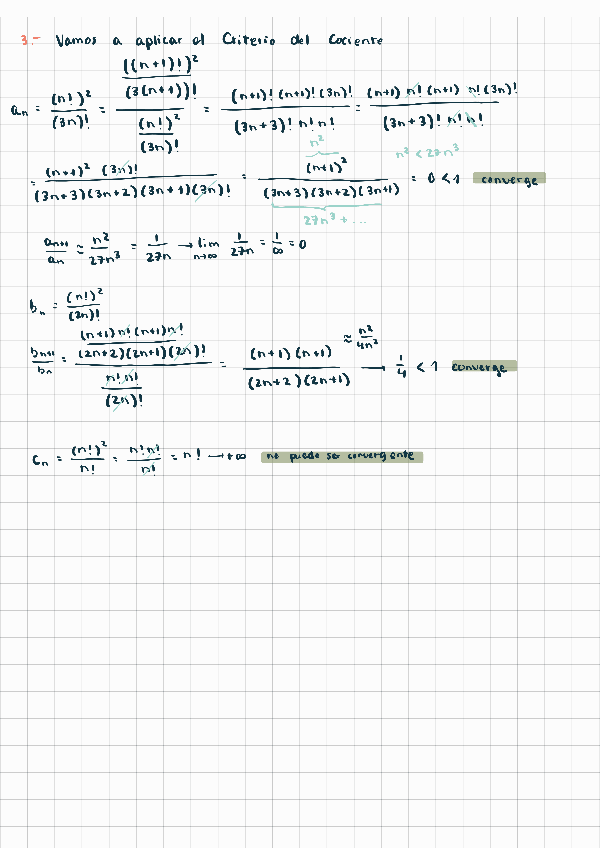 3.- Vamos a aplicar el Criterio del Cociente
a_n = (n!)^2 / (3n)! = (((n+1)!)^2 / (3(n+1))!) / ((n!)^2 / (3n)!) = (n+1)! (n+1)! (3n)! / (3n+3)! n! n! = (n+1) n! (n+1) n! (3n)! / (3n+3)! n! n!
= (n+1)^2 (3n)! / (3n+3)(3n+2)(3n+1)(3n)! = (n+1)^2 / (3n+3)(3n+2)(3n+1) = 0 < 1 converge
n^2
n^2 < 27n^3
27n^3 + ...
a_n+1 / a_n ≈ n^2 / 27n^3 = 1 / 27n → lim n→∞ 1 / 27n = 1 / ∞ = 0
b_n = (n!)^2 / (2n)!
b_n+1 / b_n = ((n+1) n! (n+1) n! / (2n+2)(2n+1)(2n)!) / (n! n! / (2n)!) = (n+1)(n+1) / (2n+2)(2n+1) ≈ n^2 / 4n^2 → 1/4 < 1 converge
c_n = (n!)^2 / n! = n! n! / n! = n! → +∞ no puede ser convergente